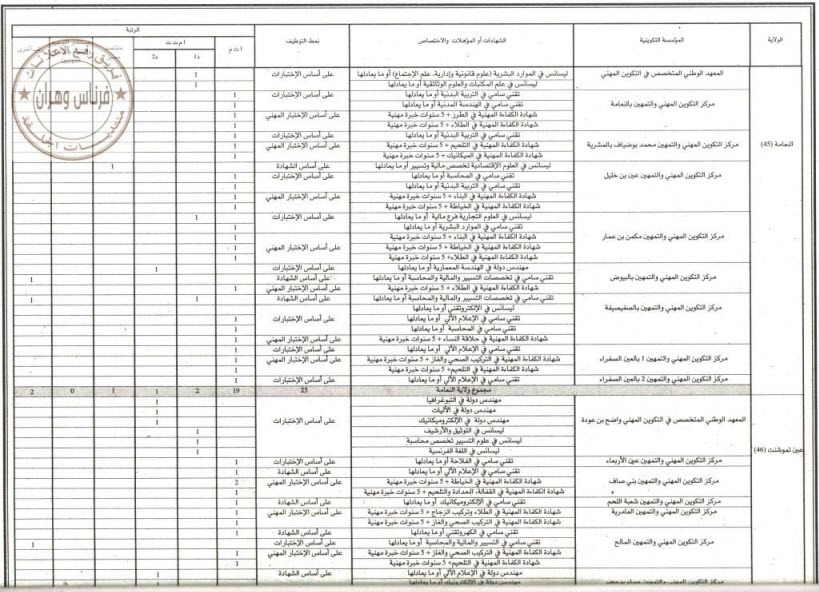 الولاية المؤسسة التكوينية الشهادات أو المؤهلات والاختصاص نمط التوظيف الرتبة
أ ت م أ م ت ت
د1 د2
فريق رفع الاعلانات
فرناس وهران
منتديات الجلفة
النعامة (45)
المعهد الوطني المتخصص في التكوين المهني ليسانس في الموارد البشرية (علوم قانونية وإدارية، علم الإجتماع) أو ما يعادلها على أساس الإختبارات 1
ليسانس في علم المكتبات والعلوم الوثائقية أو ما يعادلها 1
مركز التكوين المهني والتمهين بالنعامة تقني سامي في التربية البدنية أو ما يعادلها على أساس الإختبارات 1
تقني سامي في الهندسة المدنية أو ما يعادلها 1
شهادة الكفاءة المهنية في الطرز + 5 سنوات خبرة مهنية على أساس الإختبار المهني 1
شهادة الكفاءة المهنية في الطلاء + 5 سنوات خبرة مهنية 1
مركز التكوين المهني والتمهين محمد بوضياف بالمشرية تقني سامي في التربية البدنية أو ما يعادلها على أساس الإختبارات 1
شهادة الكفاءة المهنية في التلحيم + 5 سنوات خبرة مهنية على أساس الإختبار المهني 1
شهادة الكفاءة المهنية في الميكانيك + 5 سنوات خبرة مهنية 1
مركز التكوين المهني والتمهين عين بن خليل ليسانس في العلوم الإقتصادية تخصص مالية وتسيير أو ما يعادلها على أساس الشهادة 1
تقني سامي في المحاسبة أو ما يعادلها على أساس الإختبارات 1
تقني سامي في التربية البدنية أو ما يعادلها 1
شهادة الكفاءة المهنية في البناء + 5 سنوات خبرة مهنية على أساس الإختبار المهني 1
شهادة الكفاءة المهنية في الخياطة + 5 سنوات خبرة مهنية 1
مركز التكوين المهني والتمهين مكمن بن عمار ليسانس في العلوم التجارية فرع مالية أو ما يعادلها على أساس الإختبارات 1
تقني سامي في الموارد البشرية أو ما يعادلها 1
شهادة الكفاءة المهنية في البناء + 5 سنوات خبرة مهنية 1
شهادة الكفاءة المهنية في الخياطة + 5 سنوات خبرة مهنية على أساس الإختبار المهني 1
شهادة الكفاءة المهنية في الطلاء + 5 سنوات خبرة مهنية 1
مركز التكوين المهني والتمهين بالبيوض مهندس دولة في الهندسة المعمارية أو ما يعادلها على أساس الإختبارات 1
تقني سامي في تخصصات التسيير والمالية والمحاسبة أو ما يعادلها على أساس الشهادة 1
شهادة الكفاءة المهنية في الطلاء + 5 سنوات خبرة مهنية على أساس الإختبار المهني 1
مركز التكوين المهني والتمهين بالصفيصيفة تقني سامي في تخصصات التسيير والمالية والمحاسبة أو ما يعادلها على أساس الشهادة 1 1
ليسانس في الإلكتروتقني أو ما يعادلها
تقني سامي في الإعلام الآلي أو ما يعادلها على أساس الإختبارات 1
تقني سامي في المحاسبة أو ما يعادلها 1
شهادة الكفاءة المهنية في حلاقة النساء + 5 سنوات خبرة مهنية على أساس الإختبار المهني 1
مركز التكوين المهني والتمهين 1 بالعين الصفراء تقني سامي في الإعلام الآلي أو ما يعادلها على أساس الإختبارات 1
شهادة الكفاءة المهنية في التركيب الصحي والغاز + 5 سنوات خبرة مهنية على أساس الإختبار المهني 1
شهادة الكفاءة المهنية في التلحيم + 5 سنوات خبرة مهنية 1
مركز التكوين المهني والتمهين 2 بالعين الصفراء تقني سامي في الإعلام الآلي أو ما يعادلها على أساس الإختبارات 1
مجموع ولاية النعامة 25 19 2 1 1 0 2
عين تموشنت (46)
المعهد الوطني المتخصص في التكوين المهني واضح بن عودة مهندس دولة في التبوغرافيا على أساس الإختبارات 1
مهندس دولة في الآليات 1
مهندس دولة في الإلكتروميكانيك 1
ليسانس في التوثيق والأرشيف 1
ليسانس في علوم التسيير تخصص محاسبة 1
ليسانس في اللغة الفرنسية 1
مركز التكوين المهني والتمهين عين الأربعاء تقني سامي في الفلاحة أو ما يعادلها على أساس الإختبارات 1
مركز التكوين المهني والتمهين بني صاف تقني سامي في الإعلام الآلي أو ما يعادلها على أساس الشهادة 1
شهادة الكفاءة المهنية في الخياطة + 5 سنوات خبرة مهنية على أساس الإختبار المهني 2
شهادة الكفاءة المهنية في القفالة، الحدادة والتلحيم + 5 سنوات خبرة مهنية 1
مركز التكوين المهني والتمهين شعبة اللحم تقني سامي في الإلكتروميكانيك أو ما يعادلها على أساس الشهادة 1
مركز التكوين المهني والتمهين العامرية شهادة الكفاءة المهنية في الطلاء وتركيب الزجاج + 5 سنوات خبرة مهنية على أساس الإختبار المهني 1
شهادة الكفاءة المهنية في التركيب الصحي والغاز + 5 سنوات خبرة مهنية 1
مركز التكوين المهني والتمهين المالح تقني سامي في الكهروتقني أو ما يعادلها على أساس الشهادة 1
تقني سامي في التسيير والمالية والمحاسبة أو ما يعادلها على أساس الإختبارات 1
شهادة الكفاءة المهنية في التركيب الصحي والغاز + 5 سنوات خبرة مهنية على أساس الإختبار المهني 1
شهادة الكفاءة المهنية في التلحيم + 5 سنوات خبرة مهنية 1
مهندس دولة في الإعلام الآلي أو ما يعادلها على أساس الشهادة 1